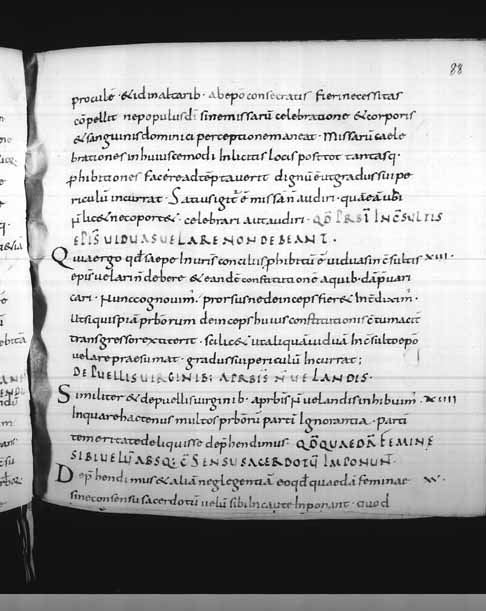 88
procule · & id in altarib · ab epo consecratis fieri necessitas
cōpellit ne populus dī sine missarū celebratione & corporis
& sanguinis dominici perceptione maneat · Missarū u
celebrationes in huiuscemodi Inlicitis locis post tot tantasq ·
phibitiones facere adtēptauerit dignū ē ut gradus sui pe
riculū incurrat · Satius igit ē missā n audiri · quā ea ubi
n lic& nec oport& · celebrari aut audiri · QD PRBI INCŌSULTIS
EPIS UIDUAS UELARE NON DEBEANT ·
Quia ergo qd saepe In uris conciliis phibitū ē uiduas incōsultis XIII ·
epis uelari n debere & eandē constitutionē a quib · dā puari
cari · nunc cognouim · prorsus ne deinceps fier& Inēdixim ·
Ut si quispiā prborum deinceps huius constitutionis cōtumacit
transgressor extiterit · scilic& ut aliquā uiduā Incōsulto epo
uelare praesumat · gradus sui periculū Incurrat ;
DE PUELLIS UIRGINIB ; A PRBIS N UELANDIS ·
Similiter & de puellis uirginib · a prbis n uelandis inhibuim · XIIII
In quare hactenus multos prborū parti Ignorantia · parti
temeritate deliquisse dephendimus · QD QUAEDĀ FEMINE
SIBI UELŪ ABSQ ; CŌSENSU SACERDOTŪ IMPONUNT ·
Dephendimus & aliā neglegentiā eo qd quaedā feminae XV ·
sine consensu sacerdotū uelū sibi Incaute Inponant · quod